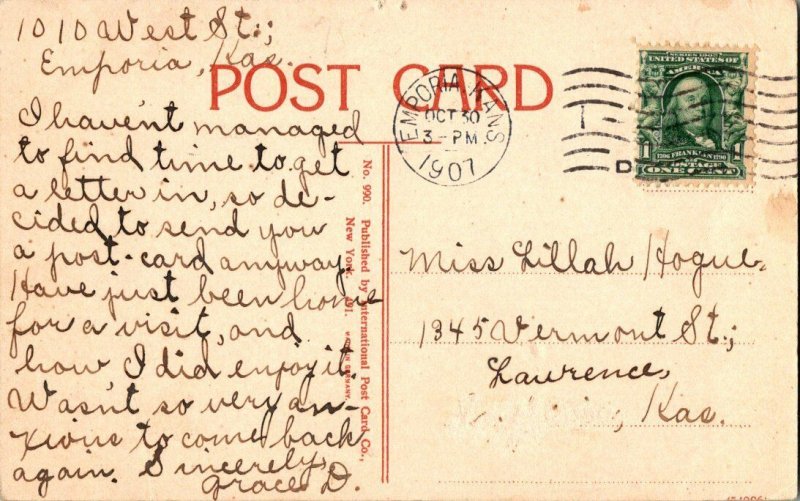 1010 West St.;
Emporia, Kas.
POST CARD
EMPORIA, KANS
OCT 30
3-PM
1907
D
SERIES 1902
UNITED STATES OF
AMERICA
1 1
1706 FRANKLIN 1790
POSTAGE
ONE CENT
I haven't managed
to find time to get
a letter in, so de-
cided to send you
a post-card anyway.
Have just been home
for a visit, and
how I did enjoy it.
Wasn't so very an-
xious to come back
again. Sincerely,
Grace D.
No. 990. Published by International Post Card Co.,
New York. GERMANY.
Miss Lillah Hogue,
1345 Vermont St.;
Lawrence,
Kas.